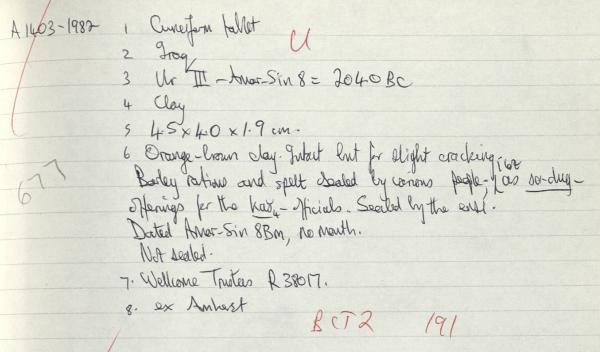 A 1403-1982 1 Cuneiform tablet
U
2 Iraq
3 Ur III - Amar-Sin 8 = 2040 BC
4 Clay
5 4.5 x 4.0 x 1.9 cm.
6 Orange-brown clay. Intact but for slight cracking.
677 Barley rations and spelt sealed by various people, as sá-dug-
offerings for the kas4-officials. Sealed by the ensi.
Dated Amar-Sin 8Bm, no month.
Not sealed.
7. Wellcome Trustees R 38017.
8. ex Amherst
BCT2 191